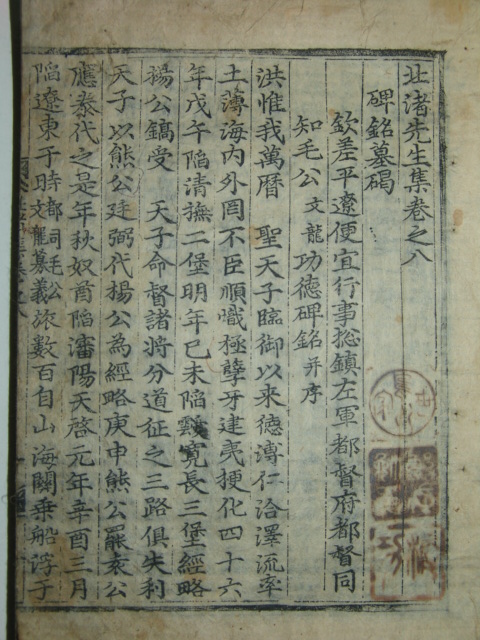 北渚先生集卷之八
碑銘墓碣
欽差平遼便宜行事総鎮左軍都督府都督同
知毛公文龍功德碑銘并序
洪惟我萬曆 聖天子臨御以來德溥仁洽澤流率
土薄海内外罔不臣順嘰極孽牙建夷梗化四十六
年戊午陷清撫二堡明年己未陷寬長三堡經略
楊公鎬受 天子命督諸將分道征之三路俱失利
天子以熊公廷弼代楊公為經略庚申熊公罷袁公
應泰代之是年秋奴酋陷瀋陽天啓元年辛酉三月
陷遼東于時都司毛公文龍慕義旅數百自山海關乗船浮于